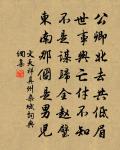 公卿北去共低眉
世事興亡付不知
不是謀歸全趙璧
東南那個是男兒
文天祥真州雜賦詞典
網集